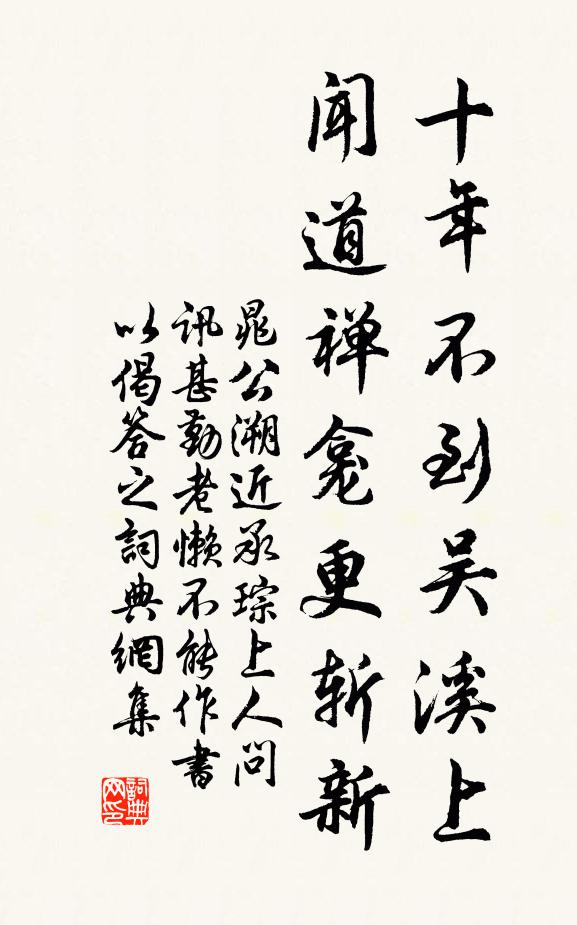 十年不到吴溪上
闻道禅龛更斩新
晁公溯近承琮上人问
讯甚勤老懒不能作书
以偈答之詞典網集
詞典
网印